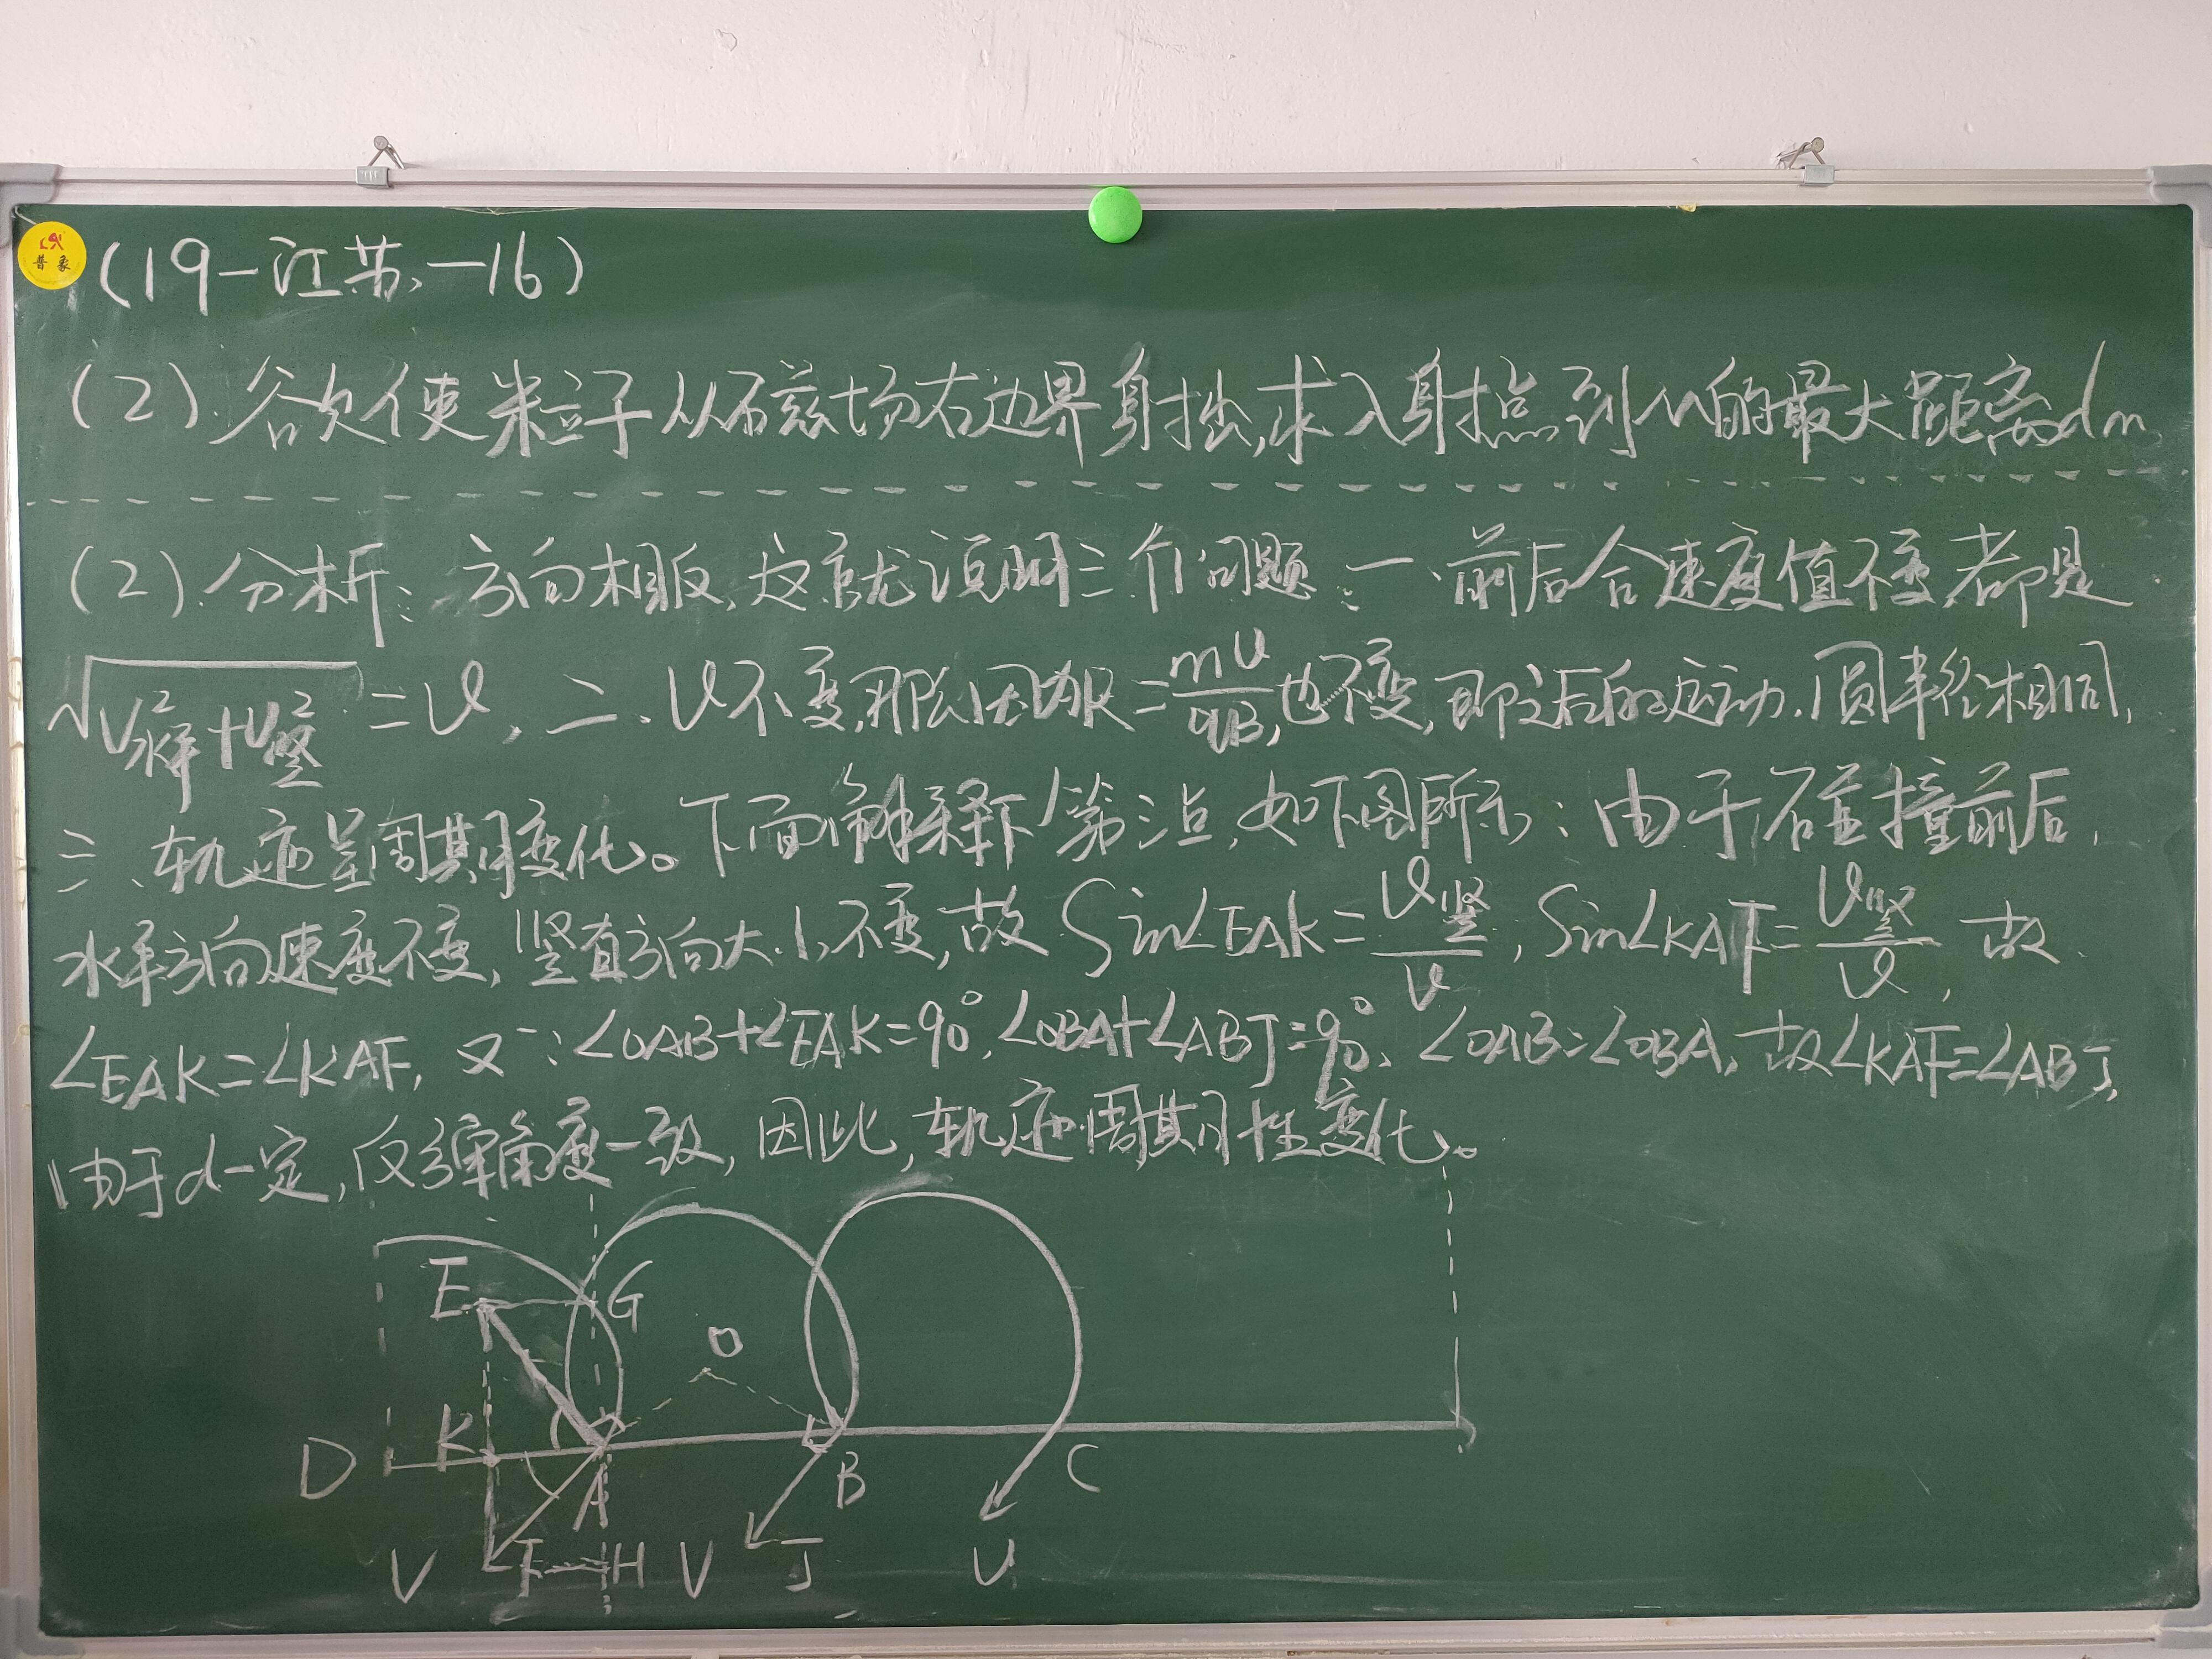 普象
(19-江苏-16)
(2).欲使粒子从磁场右边界射出,求入射点到M的最大距离dm
(2).分析:方向相反,这就说明三个问题:一、前后合速度值不变,都是
√(V²水平+V²竖)=V,二、V不变,那么因为R=mV/qB,也不变,即之后的运动圆半径相同,
三、轨迹呈周期变化。下面解释下第三点,如下图所示:由于碰撞前后,
水平方向速度不变,竖直方向大小不变,故Sin∠EAK=V竖/V,Sin∠KAF=V竖/V,故
∠EAK=∠KAF,又∵∠OAB+∠EAK=90°,∠OBA+∠ABJ=90°,∠OAB=∠OBA,故∠KAF=∠ABJ,
由于d一定,反弹角度一致,因此,轨迹周期性变化。
E G O
D K A B C
V F H V J V